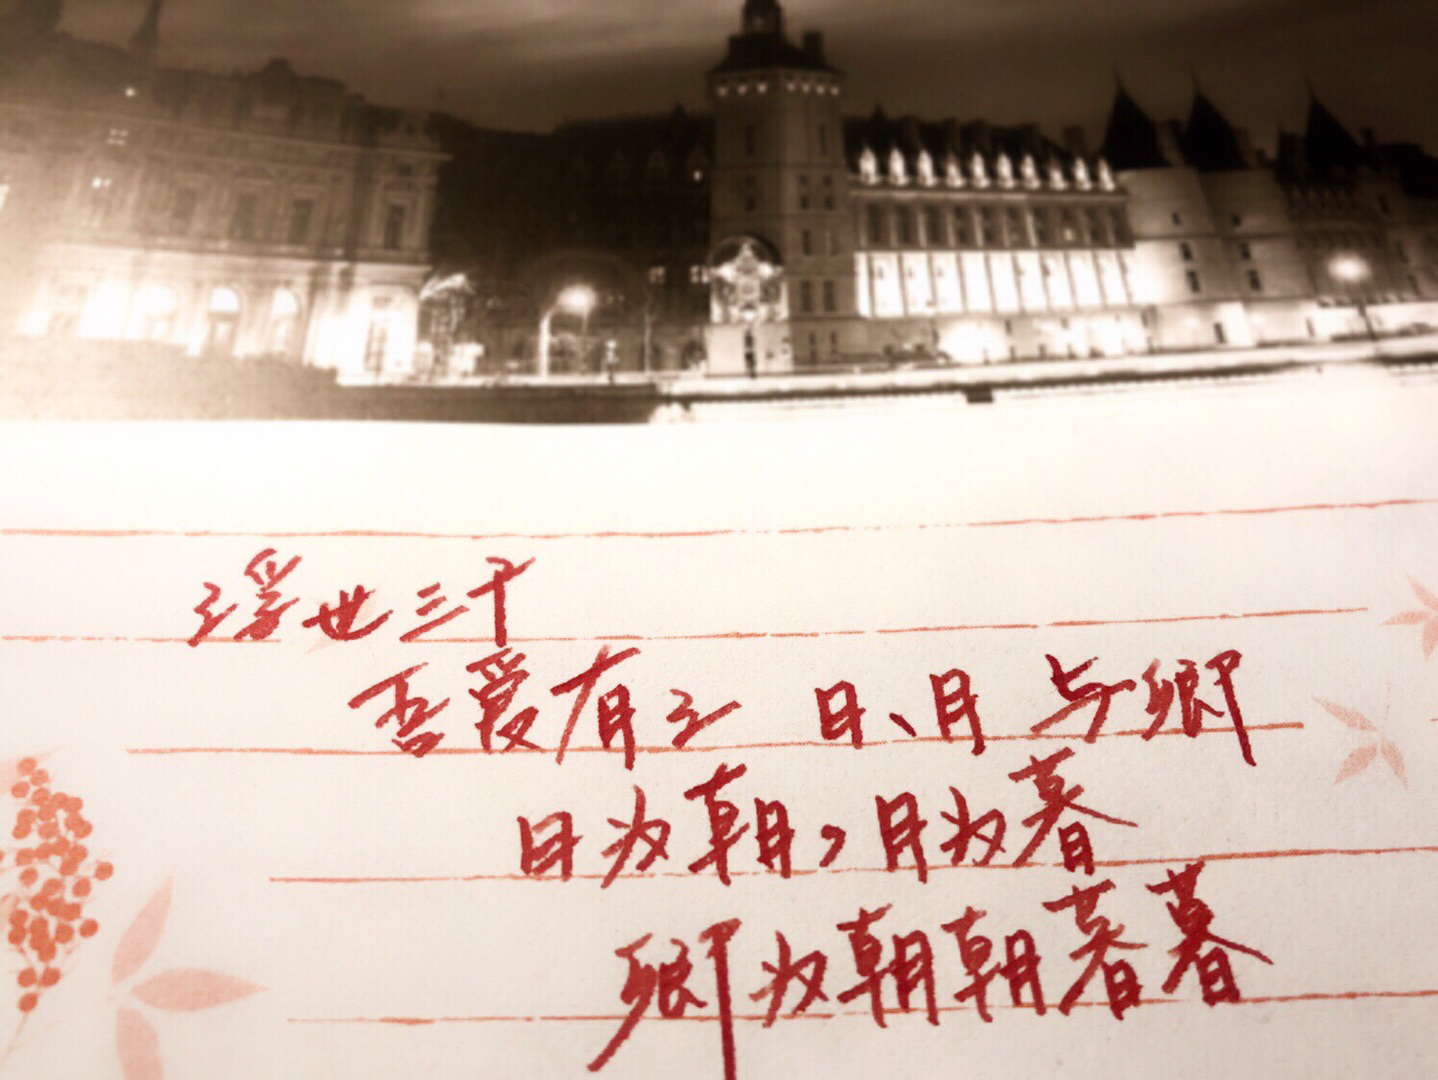 浮世三千
吾爱有三 日、月与卿
日为朝,月为暮
卿为朝朝暮暮